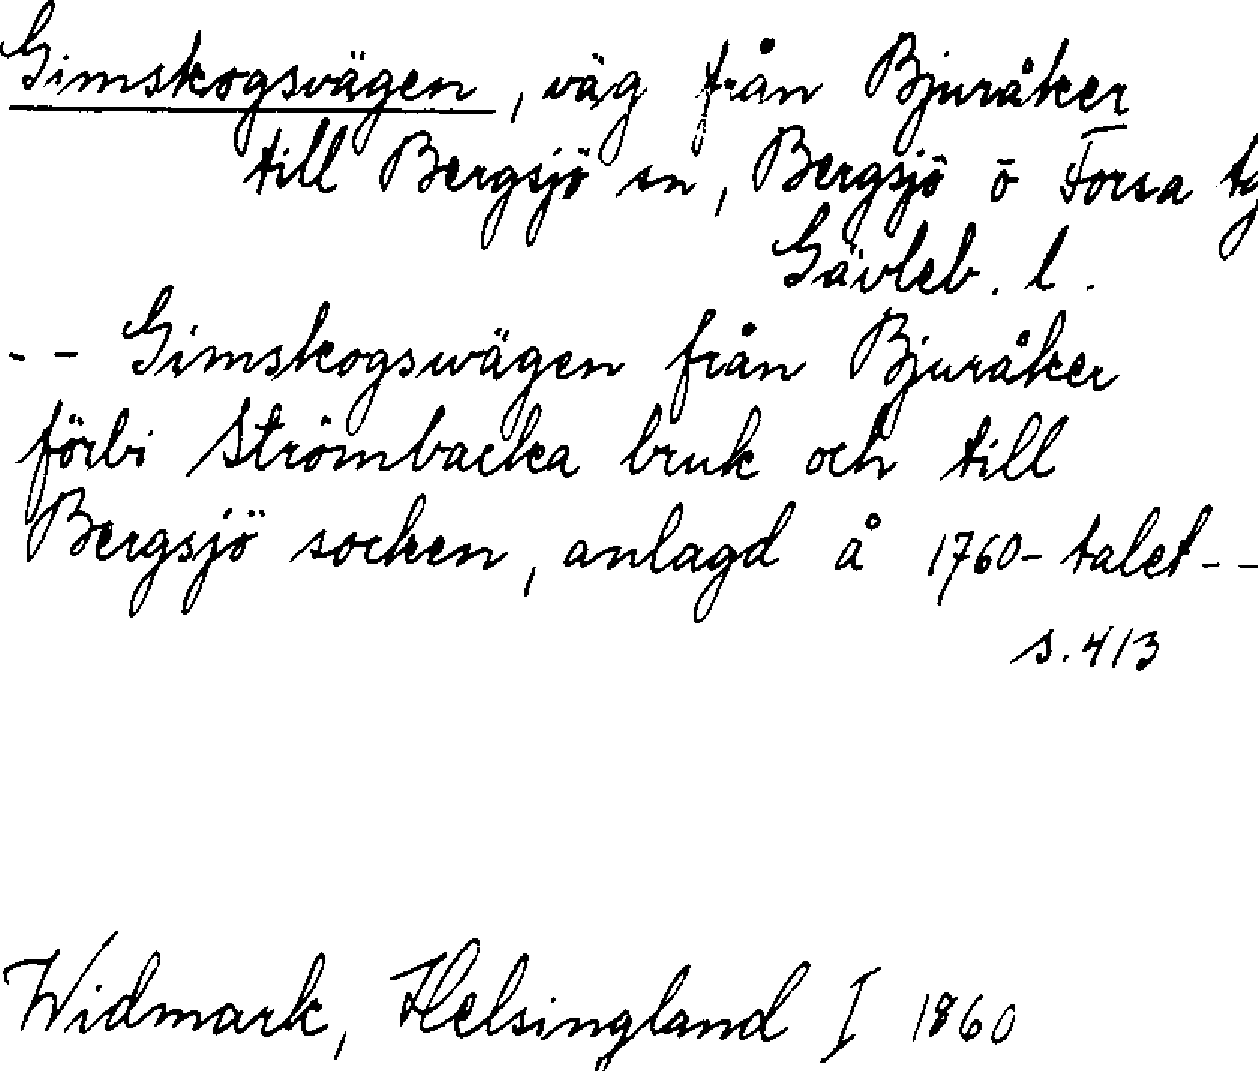 Gimskogsvägen, väg från Bjuråker
till Bergsjö sn, Bergsjö o Forsa tg
Gävleb. l.
-- Gimskogswägen från Bjuråker
förbi Strömbacka bruk och till
Bergsjö socken, anlagd å 1760-talet--
s. 413
Widmark, Helsingland I 1860